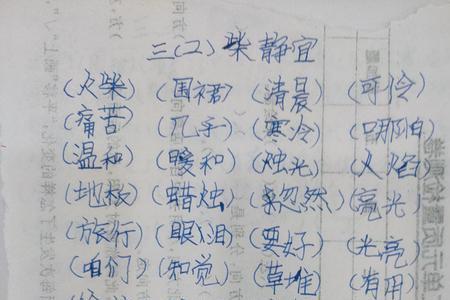 三(2) 柴静宜
(火柴) (围裙) (清晨) (可伶)
(痛苦) (几乎) (寒冷) (哪怕)
(温和) (暖和) (烛光) (火焰)
(地板) (蜡烛) (忽然) (亮光)
(旅行) (眼泪) (要好) (光亮)
(咱们) (知觉) (草堆) (有用)